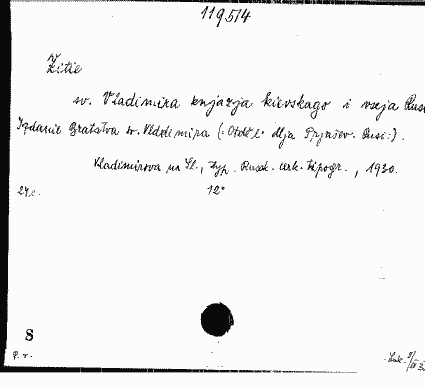 119514
Žitie
sv. Vladimira knjazja kievskago i vseja Rusi
Izdanie Bratstva sv. Vladimira (: Otděl. dlja Prjašev. Rusi :).
Vladimirova na Sl., Russk. cerk. tipogr., 1930.
24 c. 12°
S
p. r.